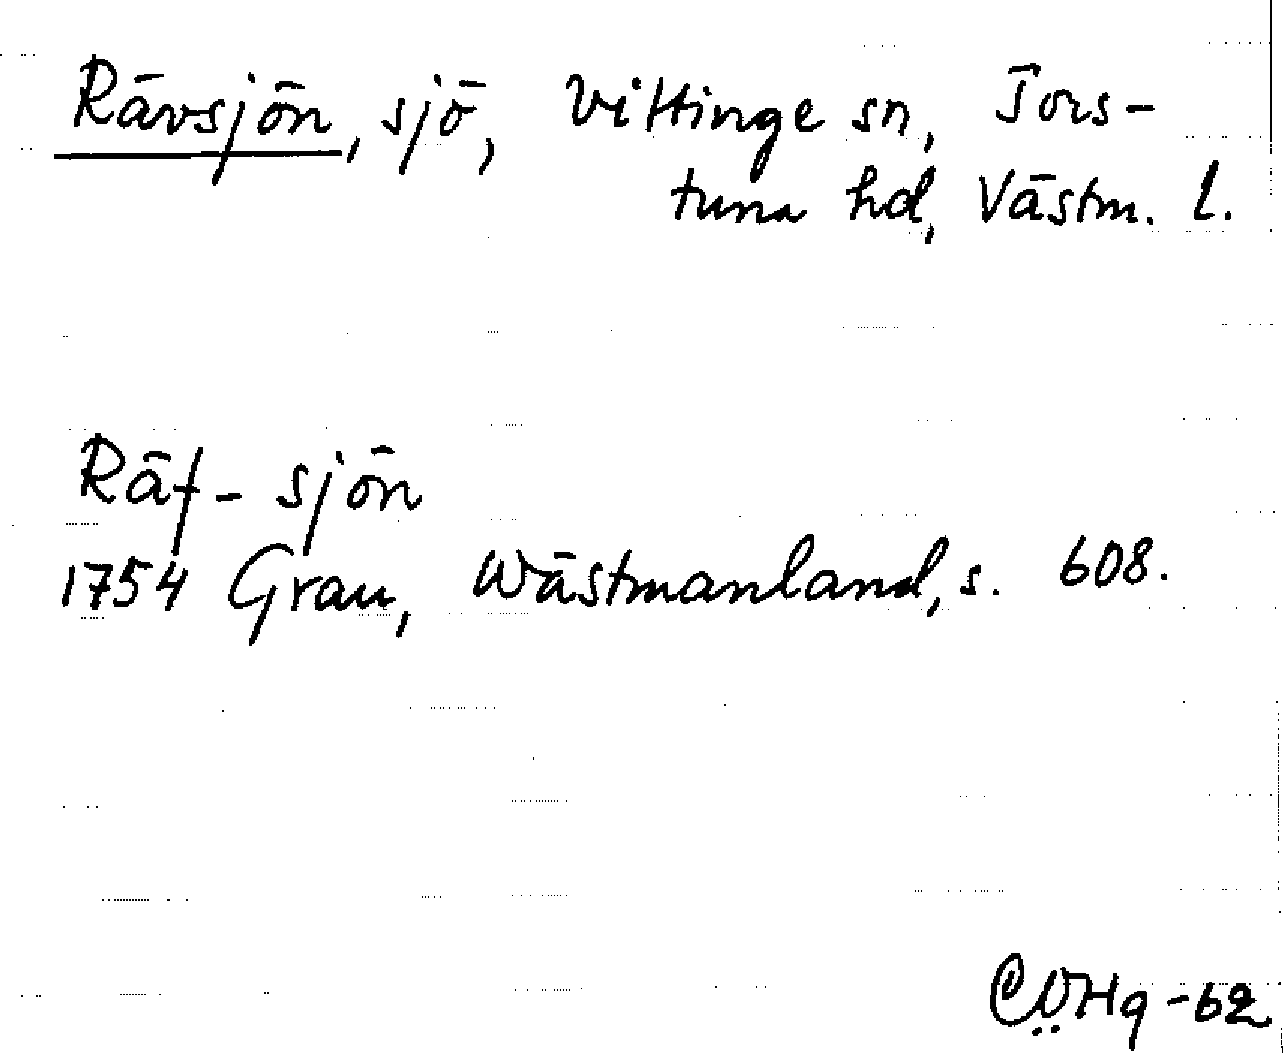 Rävsjön, sjö, Vittinge sn, Tors-
tuna hd, Västm. l.
Räf-sjön
1754 Grau, Wästmanland, s. 608.